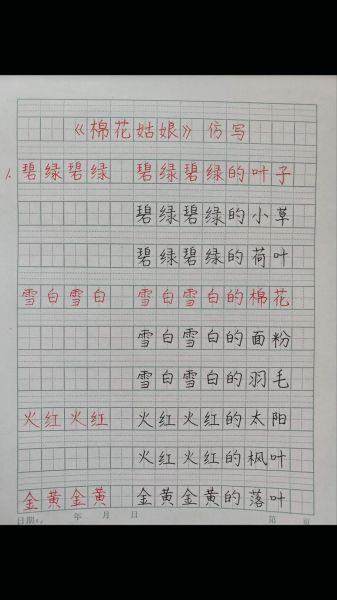 《棉花姑娘》仿写
1. 碧绿碧绿 碧绿碧绿的叶子
碧绿碧绿的小草
碧绿碧绿的荷叶
雪白雪白 雪白雪白的棉花
雪白雪白的面粉
雪白雪白的羽毛
火红火红 火红火红的太阳
火红火红的枫叶
金黄金黄 金黄金黄的落叶
日期: 年 月 日 第 页